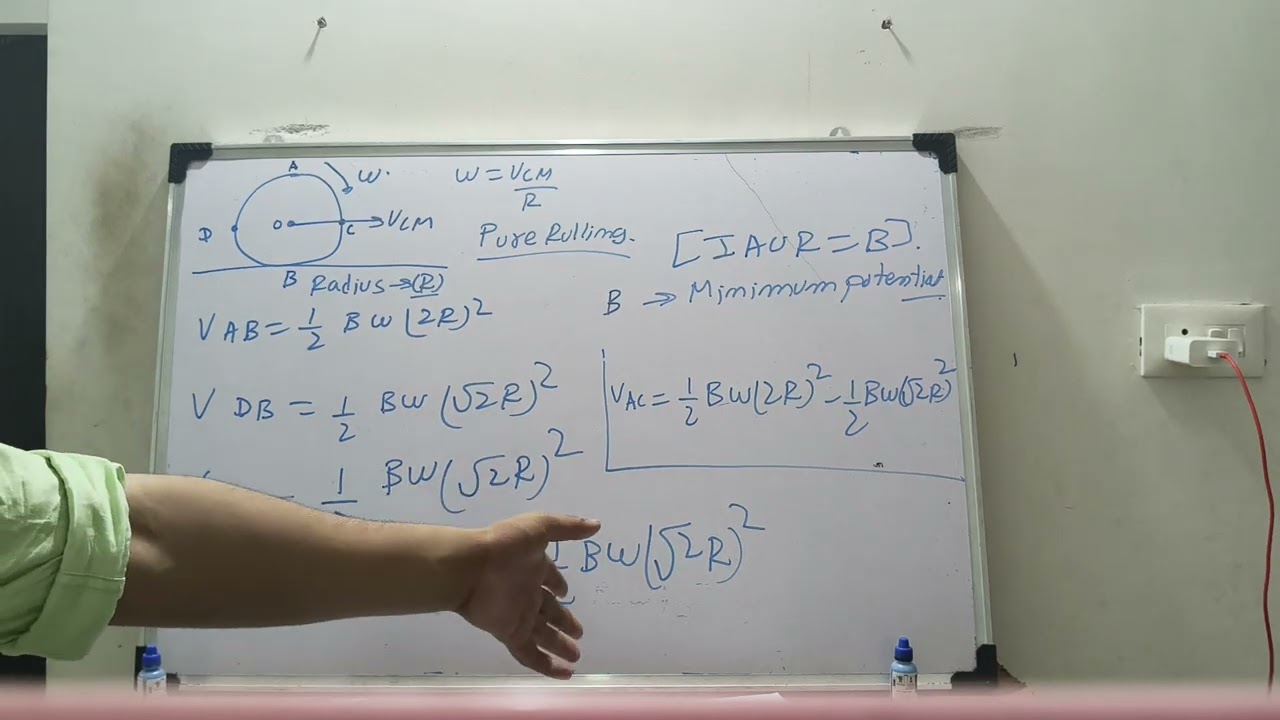 A
ω
D
O
VCM
C
B
Radius → (R)
ω = VCM / R
Pure Rulling.
[IAOR = B].
B → Minimum potential
V AB = 1/2 Bω(2R)²
V DB = 1/2 Bω(√2R)²
VAC = 1/2 Bω(2R)² - 1/2 Bω(√2R)²
= 1/2 Bω(√2R)²
Bω(√2R)²